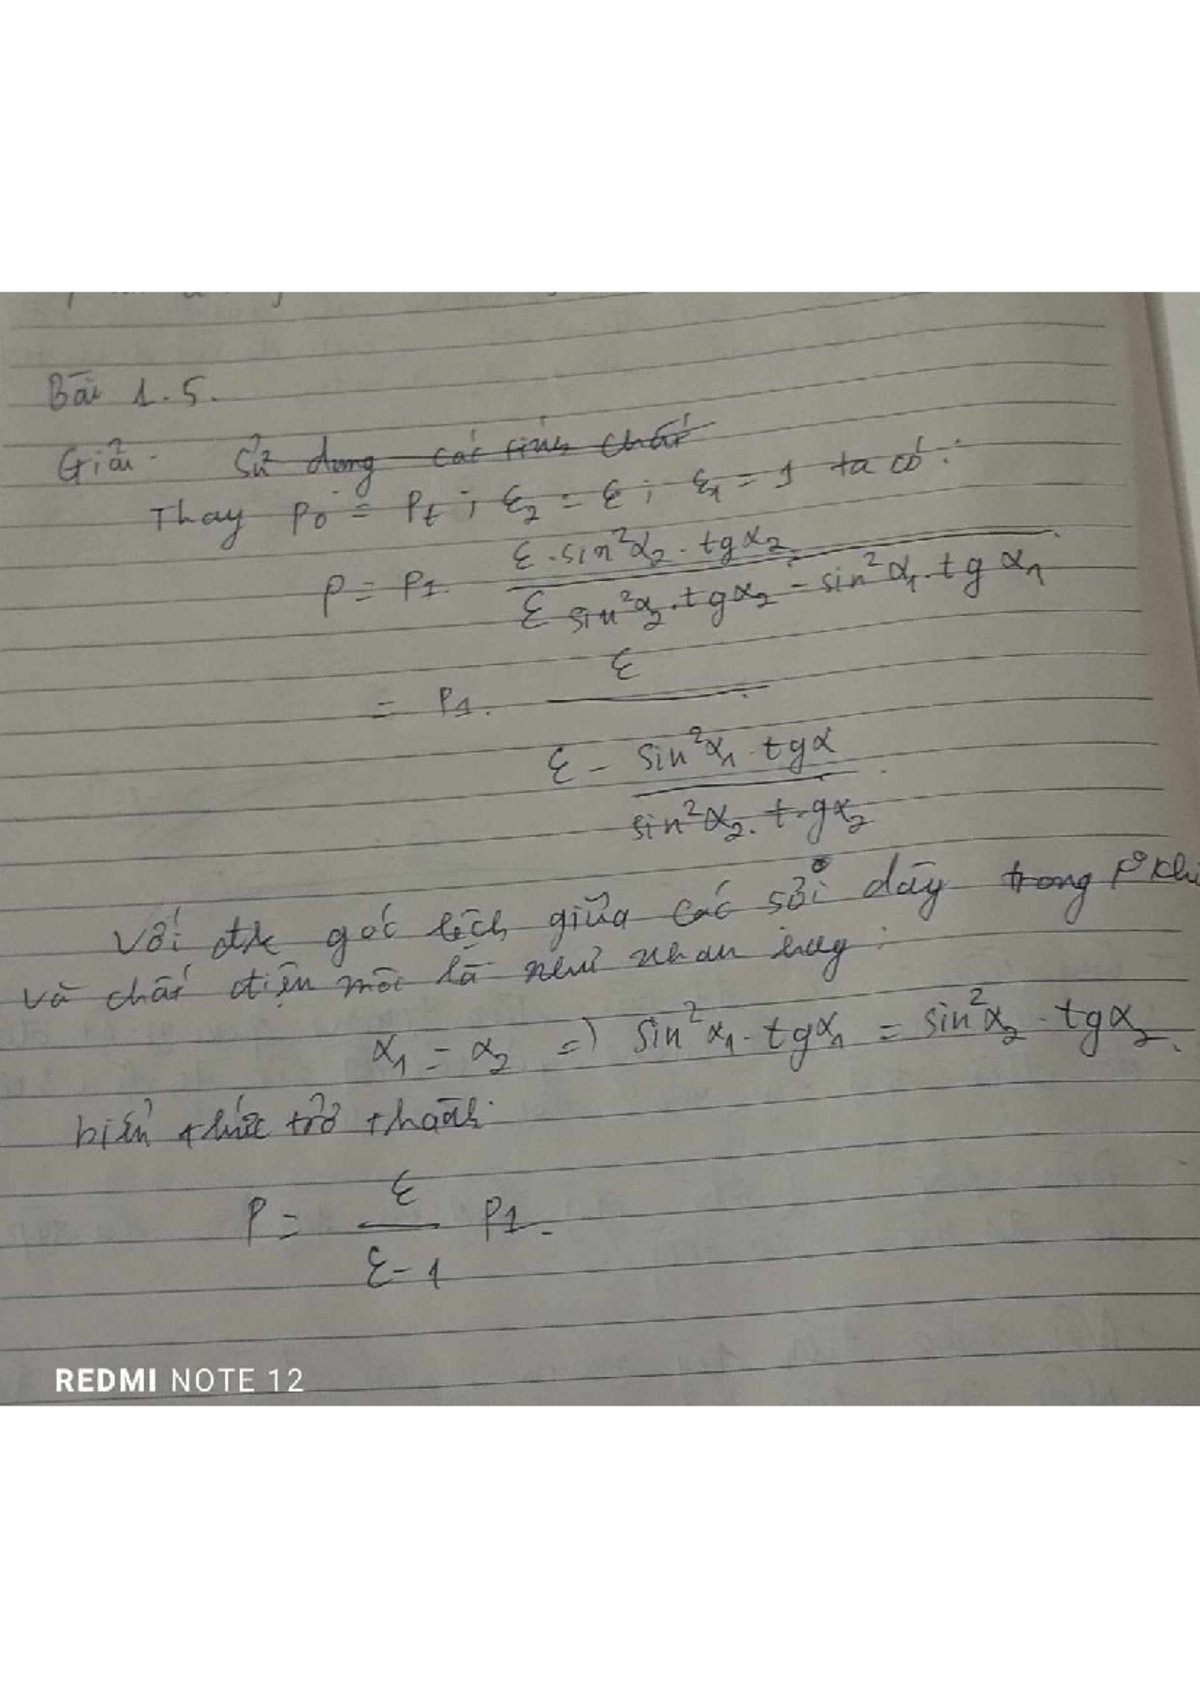 Bài 1.5.
Giải. Sử dụng các tính chất
Thay P0 = Pt ; ε2 = ε ; ε1 = 1 ta có:
P = P1. ε.sin²α2.tgα2 / ε sin²α2.tgα2 - sin²α1.tgα1
= P1. ε / ε - sin²α1.tgα / sin²α2.t.gα2
Với đk góc lệch giữa các sợi dây trong P° khí
và chất điện môi là như nhau hay:
α1 = α2 => sin²α1.tgα1 = sin²α2.tgα2.
biểu thức trở thành:
P = ε / ε-1 P1.
REDMI NOTE 12